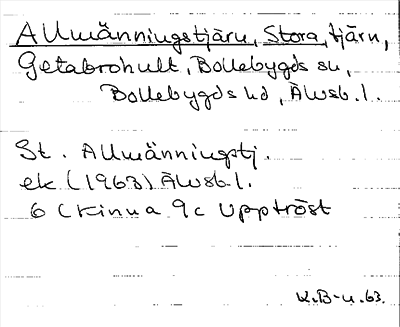 Allmänningstjärn, Stora, tjärn,
Getabrohult, Bollebygds sn,
Bollebygds hd, Älvsb. l.
St. Allmänningstj.
ek (1963) Älvsb l.
6 C Kinna 9c Upptröst
K.B-n.63.